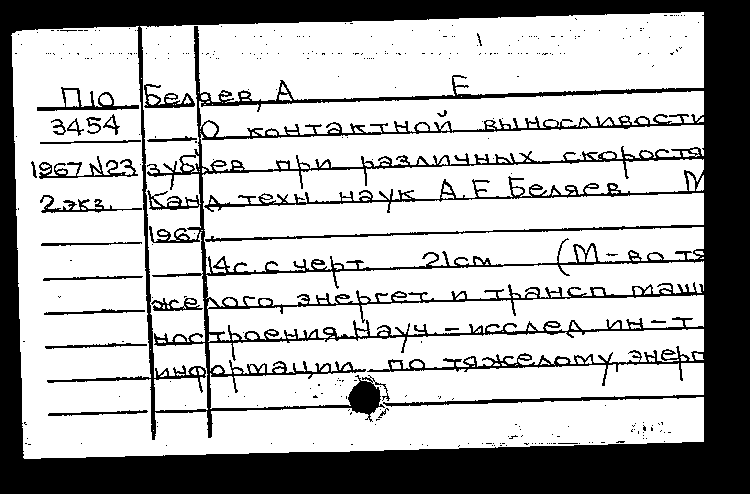 П10 Беляев, А Е
3454 О контактной выносливости
1967 N23 зубьев при различных скоростя
2 экз. Канд техн. наук А.Е Беляев. М
1967.
14с. с черт. 21см (М-во тя
желого, энергет. и трансп. маши
ностроения. Науч.-исслед ин-т.
информации по тяжелому, энерг